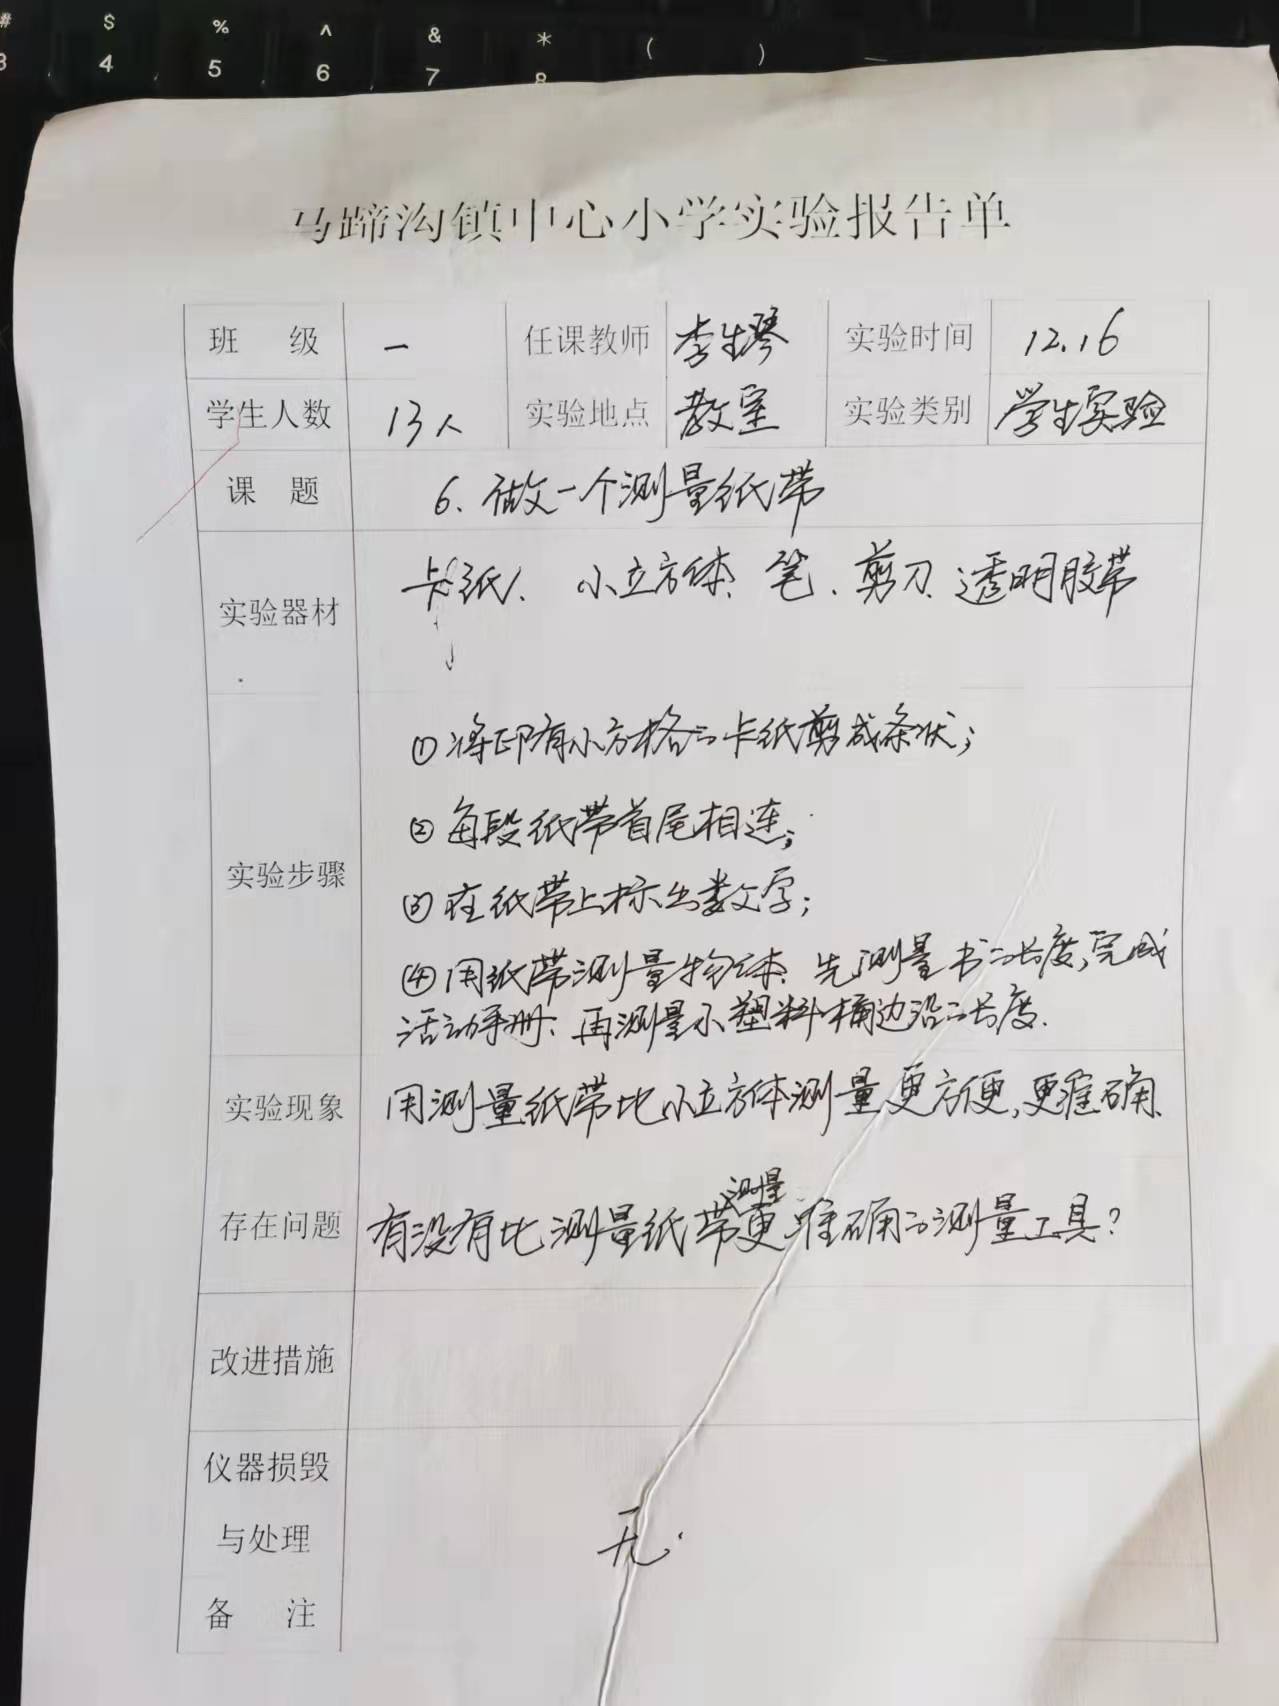 # $ % ^ & * ( ) —
3 4 5 6 7 8
马蹄沟镇中心小学实验报告单
班 级 一 任课教师 李生琴 实验时间 12.16
学生人数 13人 实验地点 教室 实验类别 学生实验
课 题 6.做一个测量纸带
实验器材 卡纸、小立方体、笔、剪刀、透明胶带
①将印有小方格的卡纸剪成条状;
②每段纸带首尾相连;
实验步骤
③在纸带上标出数字;
④用纸带测量物体、先测量书的长度,完成
活动手册、再测量小塑料桶边沿的长度.
实验现象 用测量纸带比小立方体测量更方便,更准确、
测量
存在问题 有没有比测量纸带更准确的测量工具?
改进措施
仪器损毁
与处理 无.
备 注